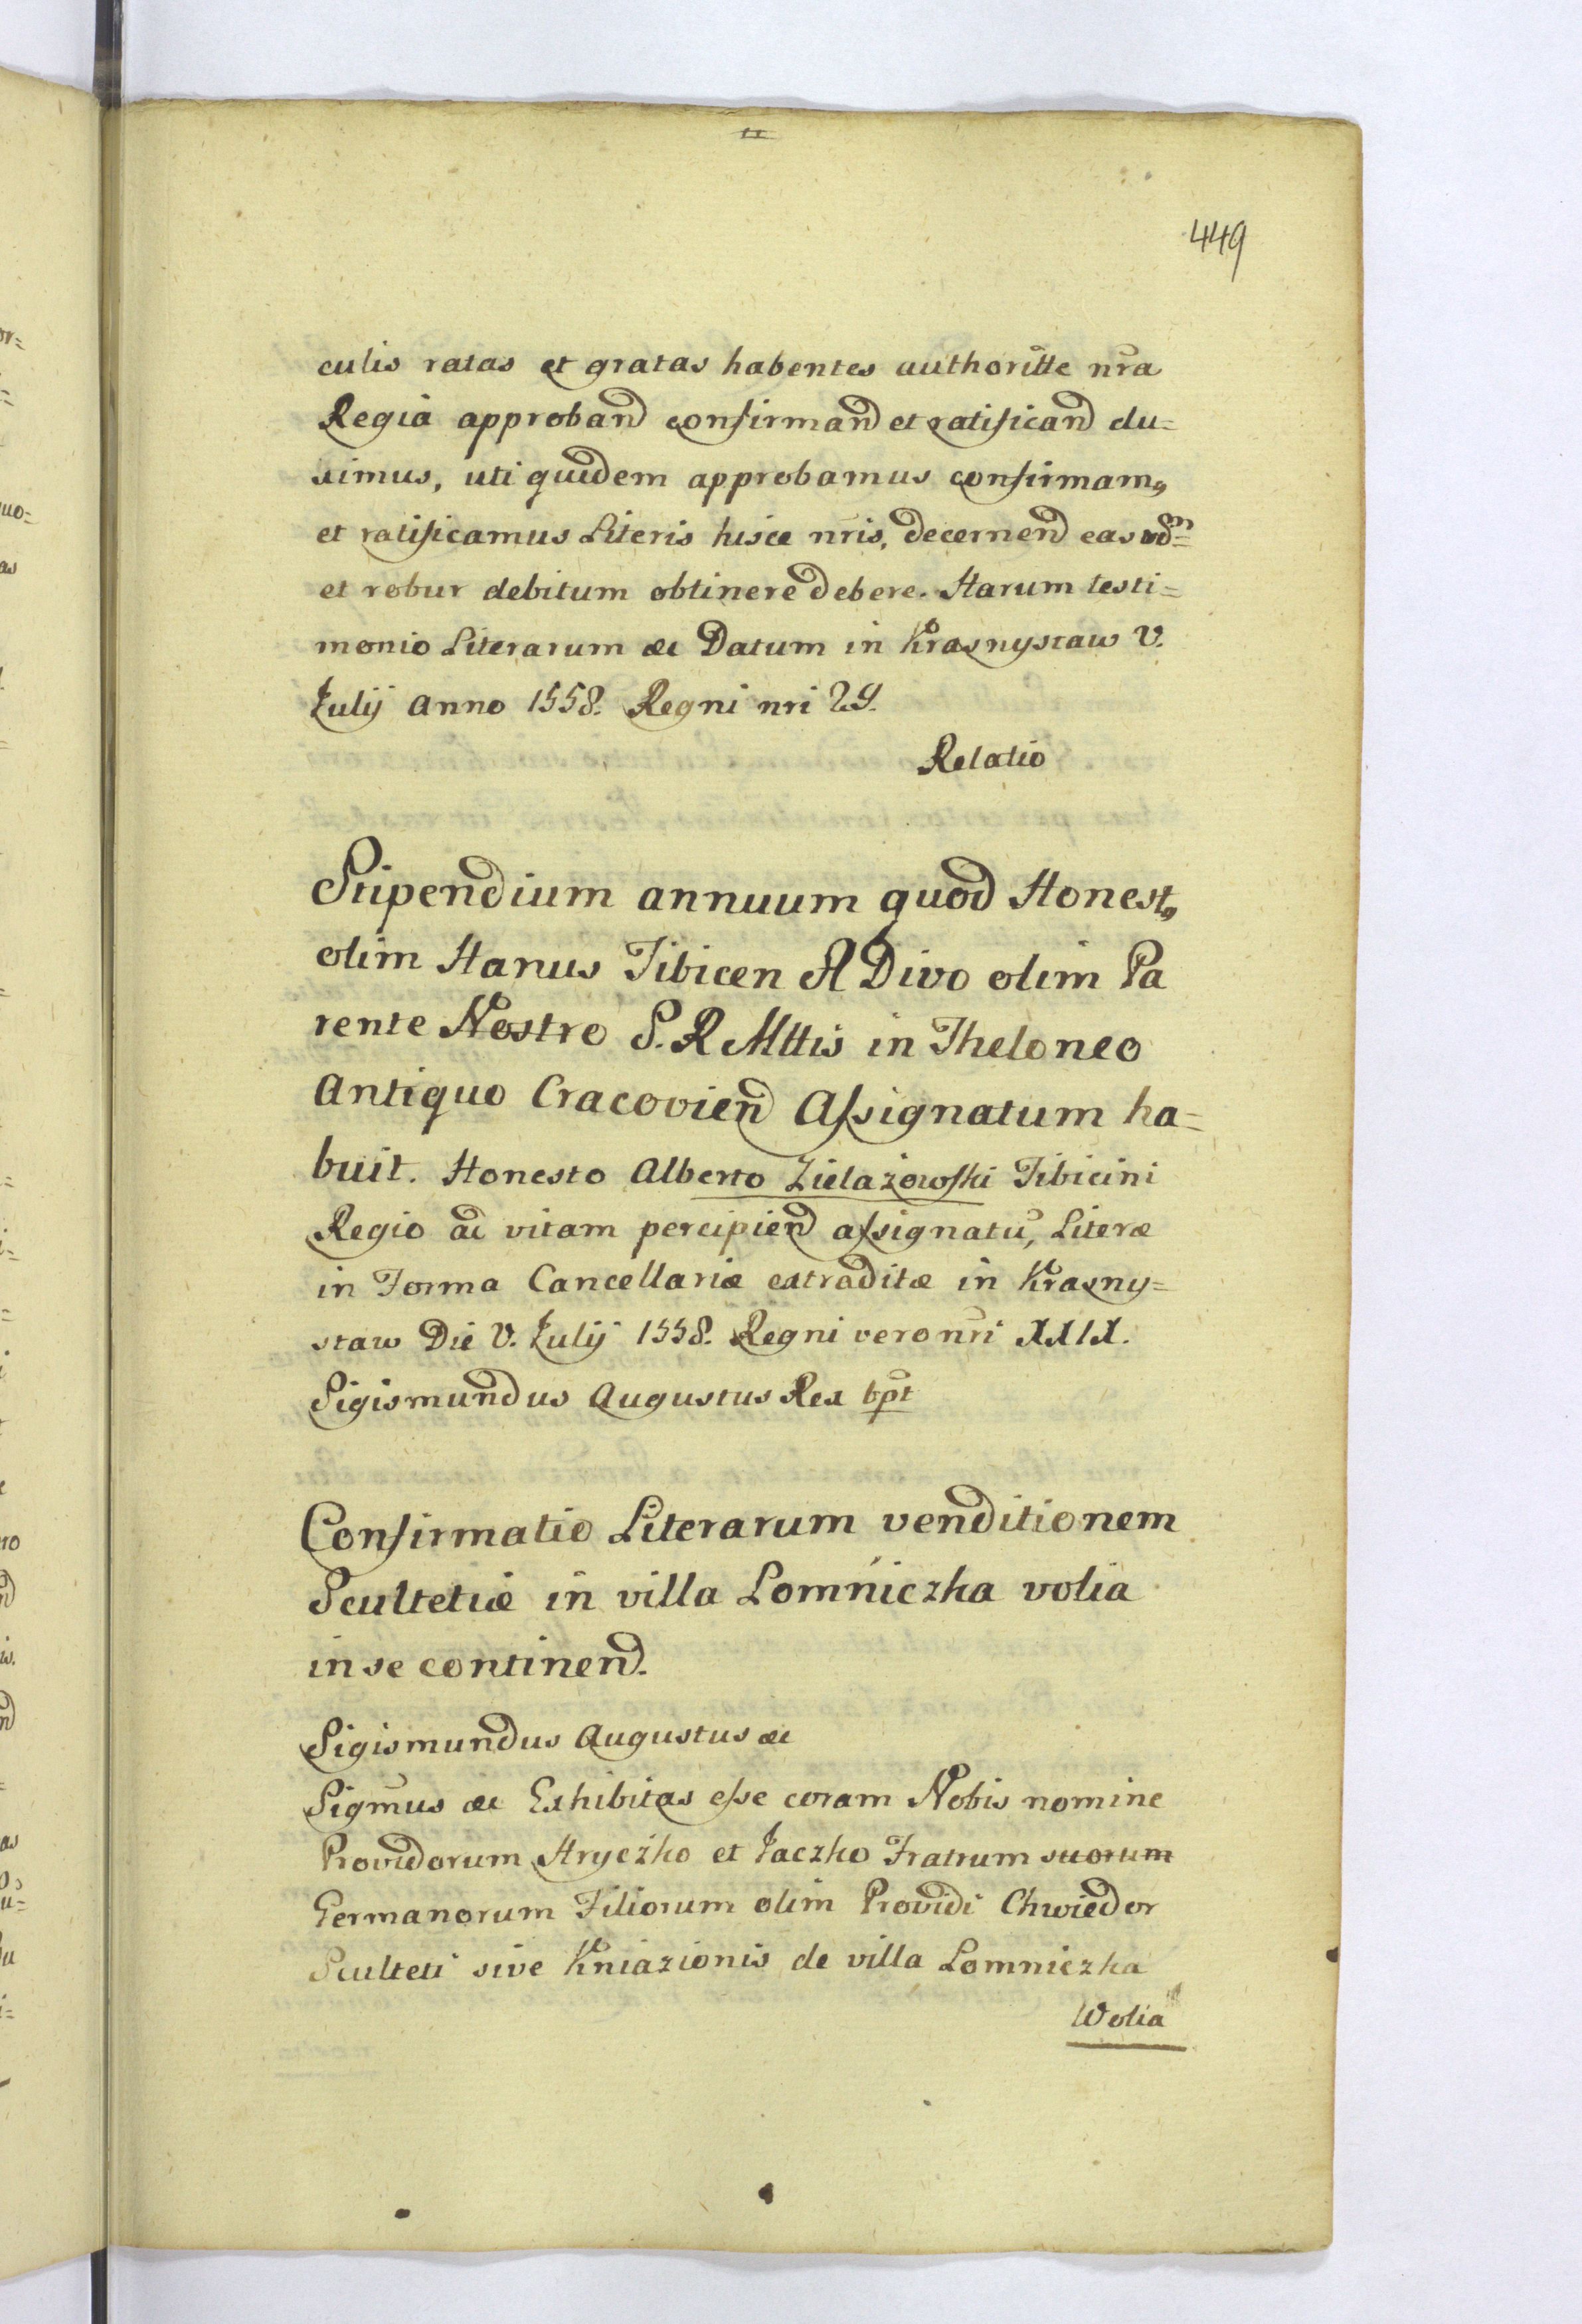 449
culis ratas et gratas habentes authoritte nra
Regiá approband confirmand et ratificand du=
ximus, uti quidem approbamus confirmam9
et ratificamus Literis hisce nris, decernend eas
et robur debitum obtinere debere. Harum testi=
monio Literarum &c Datum in Krasnystaw V.
Julij anno 1558. Regni nri 29.
Relatio
Stipendium annuum quod Honest9
olim Hanus Tibicen A Divo olim Pa
rente Nostro S. R Mttis in Theloneo
Antiquo Cracovien Assignatum ha=
buit. Honesto Alberto Zielazowski Tibicini
Regio ad vitam percipiend assignatu, Literæ
in Forma Cancellariæ extraditæ in Krasny=
staw Die V. Julij 1558. Regni vero nri XXIX.
Sigismundus Augustus Rex
Confirmatio Literarum venditionem
Scultetiæ in villa Lomniczka volia
in se continend.
Sigismundus Augustus &c
Sigmus &c Exhibitas esse coram Nobis nomine
Providorum Hryczko et Jaczko Fratrum suorum
Germanorum Filiorum olim Providi Chwiedor
Sculteti sive Kniazionis de villa Lomniczka
Wolia